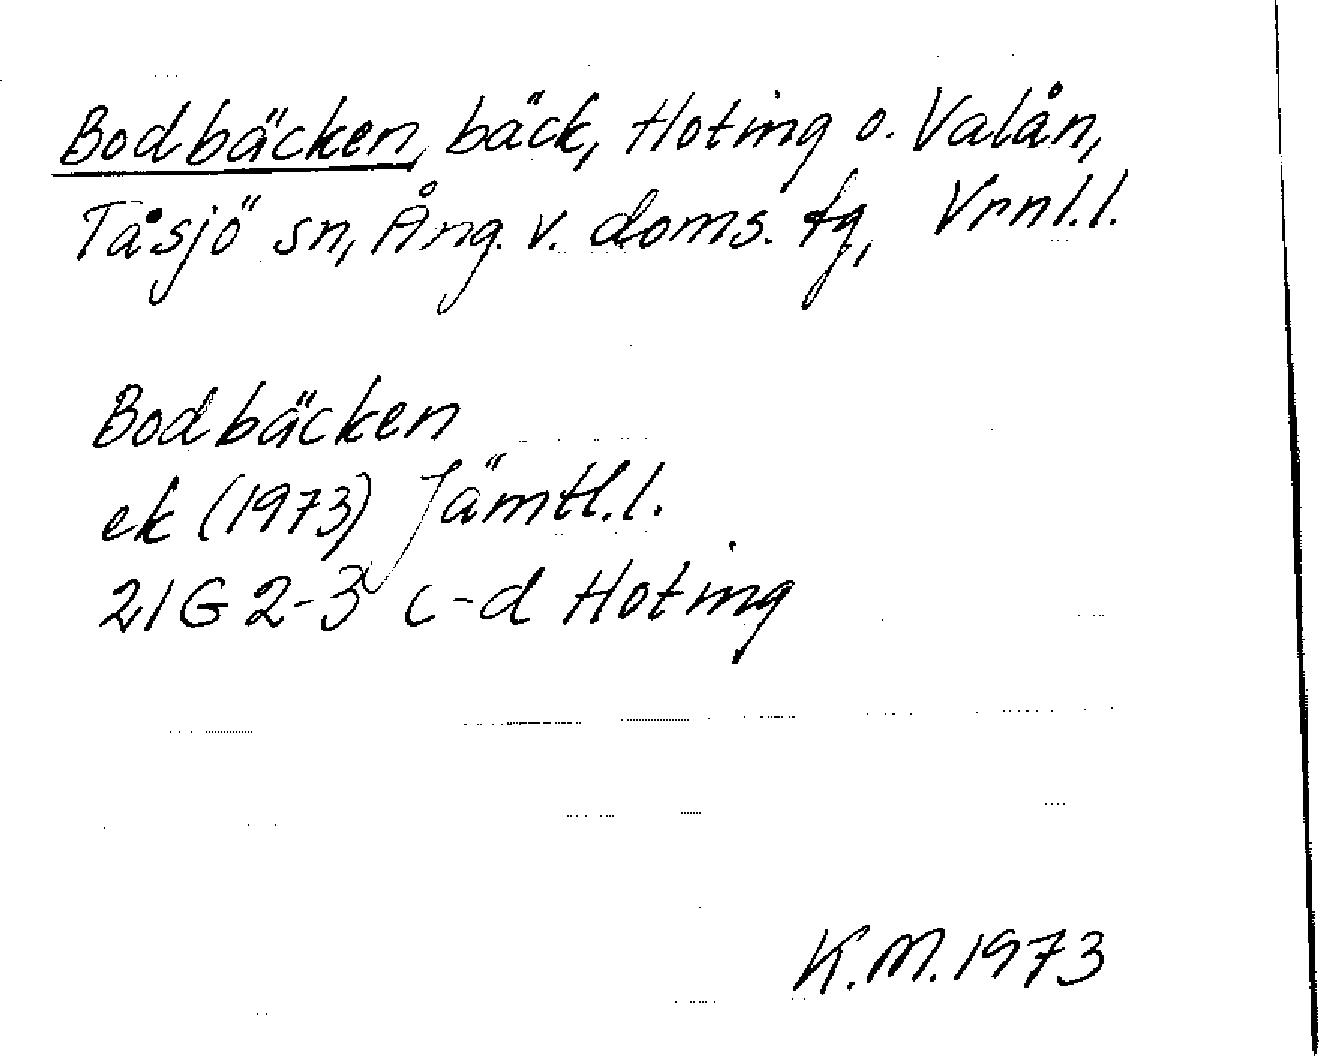 Bodbäcken, bäck, Hoting o. Valån,
Tåsjö sn, Ång. v. doms. tg, Vrnl.l.
Bodbäcken
ek (1973) Jämtl.l.
21G 2-3 c-d Hoting
K.M. 1973